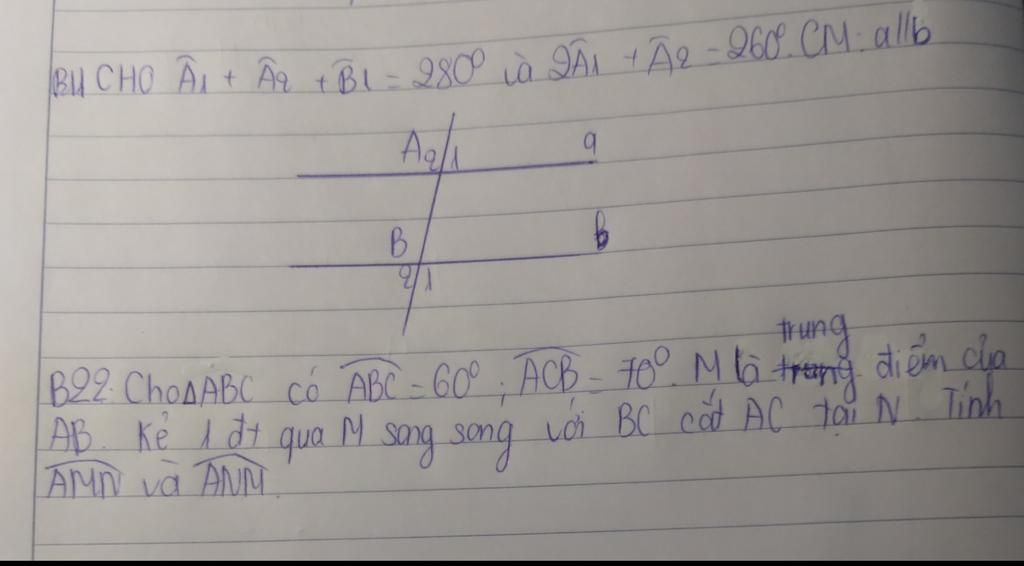 B11 CHO Â1 + Â2 + B̂1 = 280° và 2Â1 + Â2 = 260°. CM: a//b
A 2 1 a
B b
2 1
trung
B22: Cho ΔABC có ABC = 60°; ACB = 70°. M là trung điểm của
AB. Kẻ 1 đt qua M song song với BC cắt AC tại N. Tính
AMN và ANM.